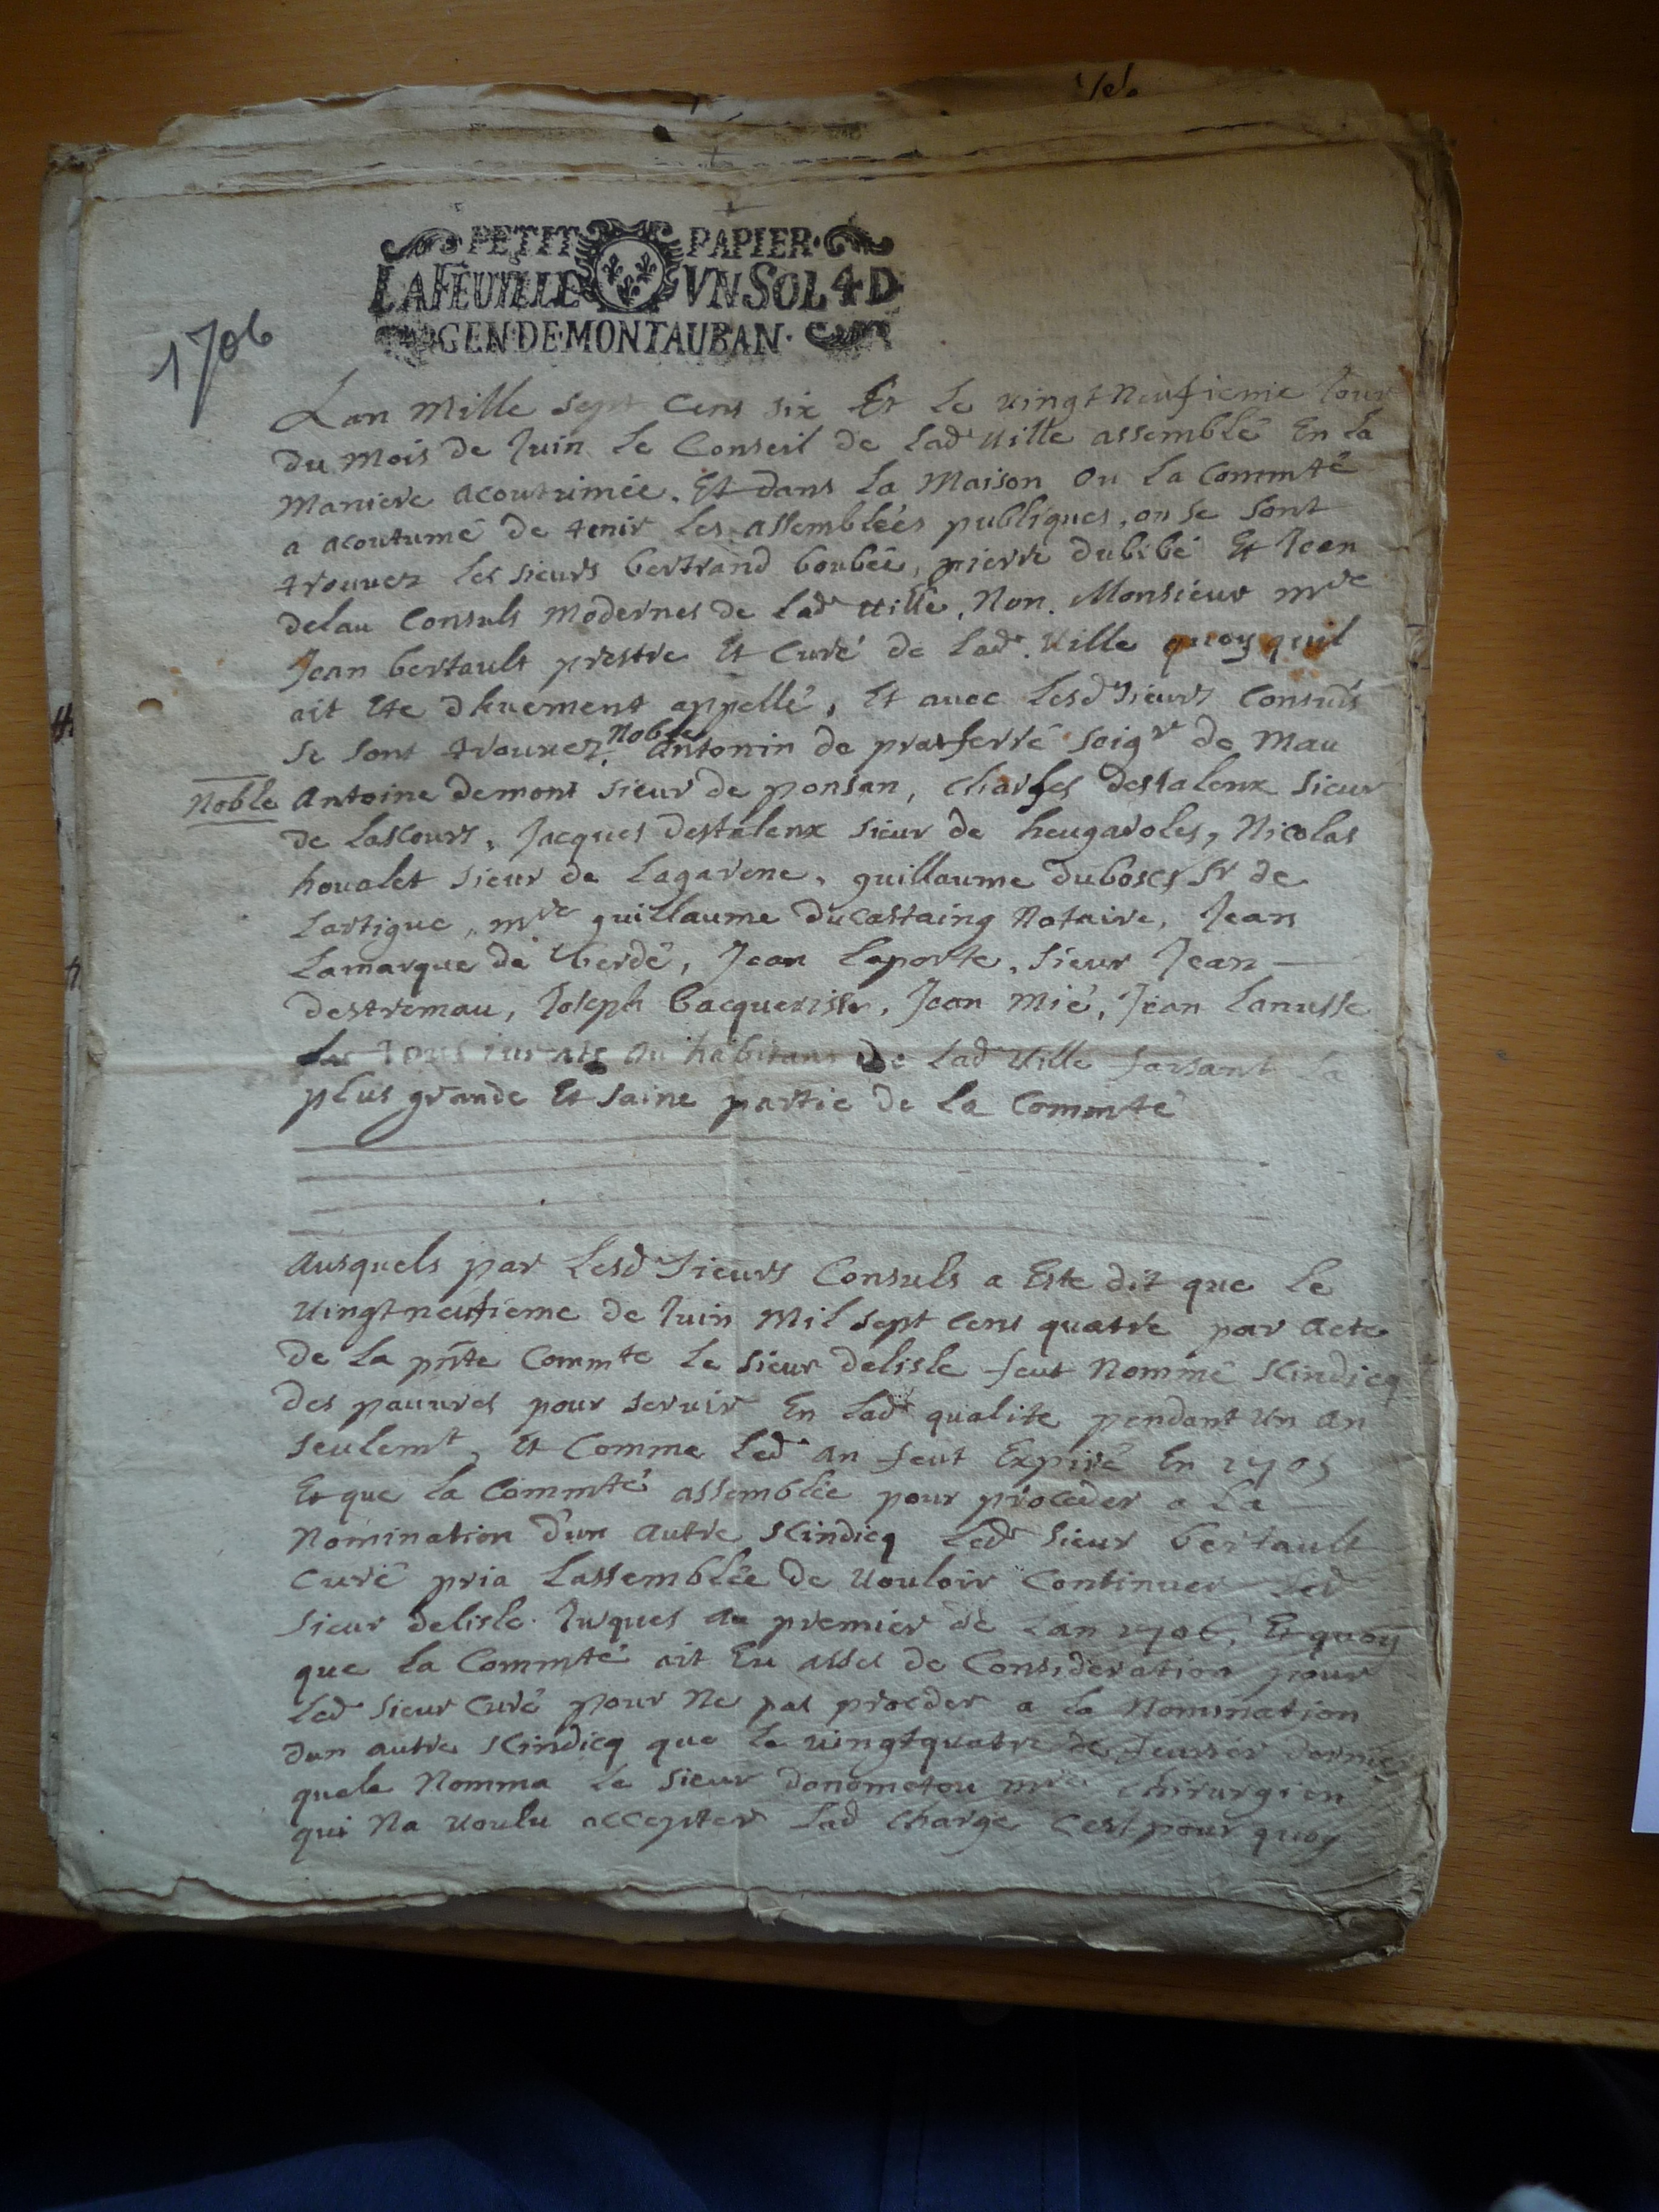 PETIT PAPIER
LAFEUILLE VN SOL 4 D
GEN·DE·MONTAUBAN·
1706
Lan Mille sept cens six Et Le vingt Neufieme Jour
du mois de Juin Le Conseil de Lad ville assemblé En La
maniere acoutumée. Et dans La Maison ou La Commté
a acoutumé de tenir les assemblées publiques, ou se sont
trouuez les sieurs bertrand boubée, pierre dubibé Et Jean
delau Consuls modernes de Lad ville, Non. Monsieur mre
Jean bertault prestre Et Curé de Lad. ville quoy quil
ait Ete dhuement appellé, Et auec Lesd Sieurs Consuls
se sont trouuez, Noble antonin de pratferré seigr de mau
Noble Antoine demont sieur de ponsan, charles destalenx sieur
de Lascours, Jacques destalenx sieur de heugaroles, Nicolas
houalet sieur de Lagarene, guillaume dubosq Sr de
Lartigue, mre guillaume ducastaing Notaire, Jean
Lamarque de verdé, Jean Laporte, sieur Jean
destremau, Joseph bacquerisse, Jean mié, Jean Lanusse
tous jurats ou habitans de Lad ville faisant La
plus grande Et saine partie de La Commté
Ausquels par Lesd Sieurs Consuls a Este dit que Le
vingt neufieme de Juin Mil sept cens quatre par acte
de La pnte Commte Le sieur delisle feut Nommé scindicq
des pauures pour seruir En Lad qualite pendant un an
seulemt, Et Comme Led an feut Expiré En 1705
Et que La Commté assemblée pour proceder a La
Nomination dun autre scindicq Led sieur bertault
Curé pria Lassemblée de vouloir Continuer Led
sieur delisle Juques au premier de Lan 1706, Et quoy
que La Commté ait Eu asses de Consideration pour
Led sieur Curé pour Ne pas proceder a La Nomination
dun autre scindicq que Le vingtquatre de feurier dernier
quele Nomma Le sieur donometou mre chirurgien
qui Na voulu accepter Lad charge Cest pour quoy